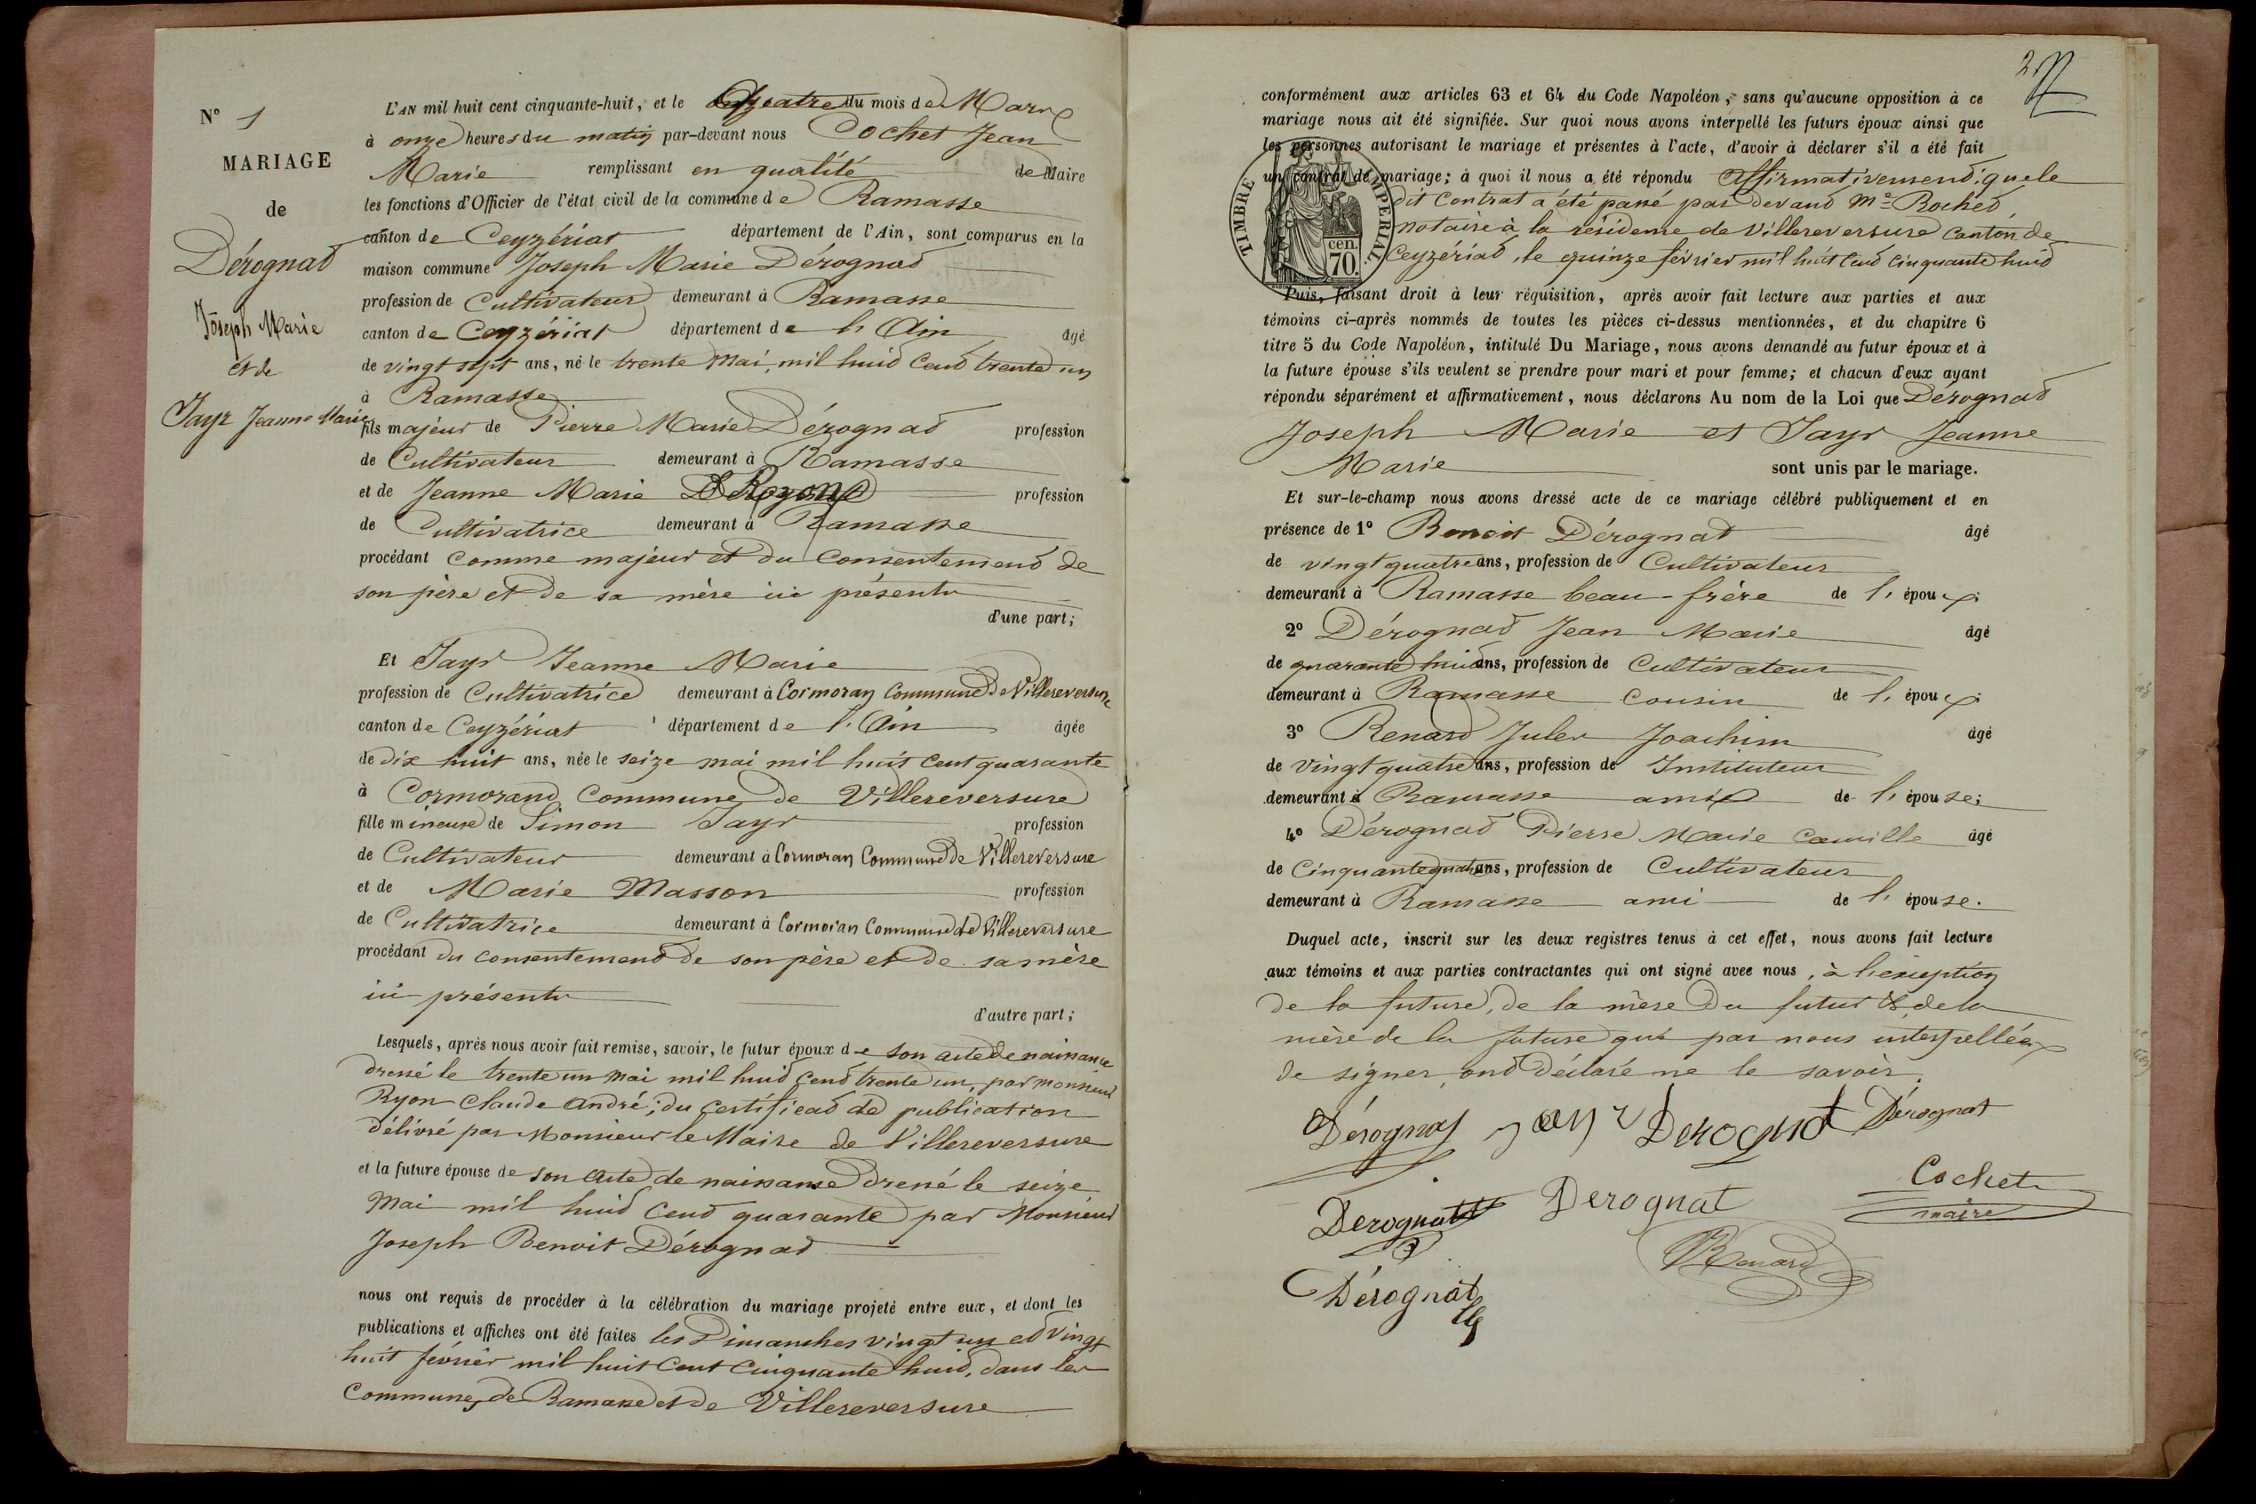 N° 1
MARIAGE
de
Dérognat
Joseph Marie
et de
Jayr Jeanne Marie
L'AN mil huit cent cinquante-huit, et le quatre du mois de Mars
à onze heures du matin par-devant nous Cochet Jean
Marie remplissant en qualité de Maire
les fonctions d'Officier de l'état civil de la commune de Ramasse
canton de Ceyzériat département de l'Ain, sont comparus en la
maison commune Joseph Marie Dérognat
profession de Cultivateur demeurant à Ramasse
canton de Ceyzériat département de l'Ain âgé
de vingt sept ans, né le trente Mai, mil huit cent trente un
à Ramasse
fils majeur de Pierre Marie Dérognat profession
de Cultivateur demeurant à Ramasse
et de Jeanne Marie profession
de Cultivatrice demeurant à Ramasse
procédant comme majeur et du consentement de
son père et de sa mère ici présents
d'une part;
Et Jayr Jeanne Marie
profession de Cultivatrice demeurant à Cormoran Commune de Villereversure
canton de Ceyzériat département de l'Ain âgée
de dix huit ans, née le seize mai mil huit cent quarante
à Cormorand Commune de Villereversure
fille mineure de Simon Jayr profession
de Cultivateur demeurant à Cormoran Commune de Villereversure
et de Marie Masson profession
de Cultivatrice demeurant à Cormoran Commune de Villereversure
procédant du consentement de son père et de sa mère
ici présents
d'autre part;
Lesquels, après nous avoir fait remise, savoir, le futur époux de son acte de naissance
dressé le trente un mai mil huit cent trente un, par monsieur
Ryon Claude André; du certificat de publication
délivré par Monsieur le Maire de Villereversure
et la future épouse de son acte de naissance dressé le seize
Mai mil huit cent quarante par Monsieur
Joseph Benoit Dérognat
nous ont requis de procéder à la célébration du mariage projeté entre eux, et dont les
publications et affiches ont été faites les Dimanches vingt un et vingt
huit février mil huit cent cinquante huit, dans les
Communes de Ramasse et de Villereversure
2
conformément aux articles 63 et 64 du Code Napoléon, sans qu'aucune opposition à ce
mariage nous ait été signifiée. Sur quoi nous avons interpellé les futurs époux ainsi que
les personnes autorisant le mariage et présentes à l'acte, d'avoir à déclarer s'il a été fait
un contrat de mariage; à quoi il nous a été répondu Affirmativement; que le
dit Contrat a été passé par devant Me Rochet
notaire à la résidence de Villereversure canton de
Ceyzériat, le quinze février mil huit cent cinquante huit
TIMBRE IMPERIAL
cen.
70.
Puis, faisant droit à leur réquisition, après avoir fait lecture aux parties et aux
témoins ci-après nommés de toutes les pièces ci-dessus mentionnées, et du chapitre 6
titre 5 du Code Napoléon, intitulé Du Mariage, nous avons demandé au futur époux et à
la future épouse s'ils veulent se prendre pour mari et pour femme; et chacun d'eux ayant
répondu séparément et affirmativement, nous déclarons Au nom de la Loi que Dérognat
Joseph Marie et Jayr Jeanne
Marie sont unis par le mariage.
Et sur-le-champ nous avons dressé acte de ce mariage célébré publiquement et en
présence de 1° Benoit Dérognat âgé
de vingt quatre ans, profession de Cultivateur
demeurant à Ramasse beau-frère de l'époux;
2° Dérognat Jean Marie âgé
de quarante huit ans, profession de Cultivateur
demeurant à Ramasse cousin de l'époux;
3° Renard Jules Joachim âgé
de vingt quatre ans, profession de Instituteur
demeurant à Ramasse ami de l'épouse;
4° Dérognat Pierre Marie Camille âgé
de Cinquante quatre ans, profession de Cultivateur
demeurant à Ramasse ami de l'épouse.
Duquel acte, inscrit sur les deux registres tenus à cet effet, nous avons fait lecture
aux témoins et aux parties contractantes qui ont signé avec nous, à l'exception
de la future, de la mère du futur & de la
mère de la future qui par nous interpellées
de signer, ont déclaré ne le savoir.
Dérognat Jayr Derognat Dérognat
Cochet
maire
Derognat Derognat
Renard
Dérognat